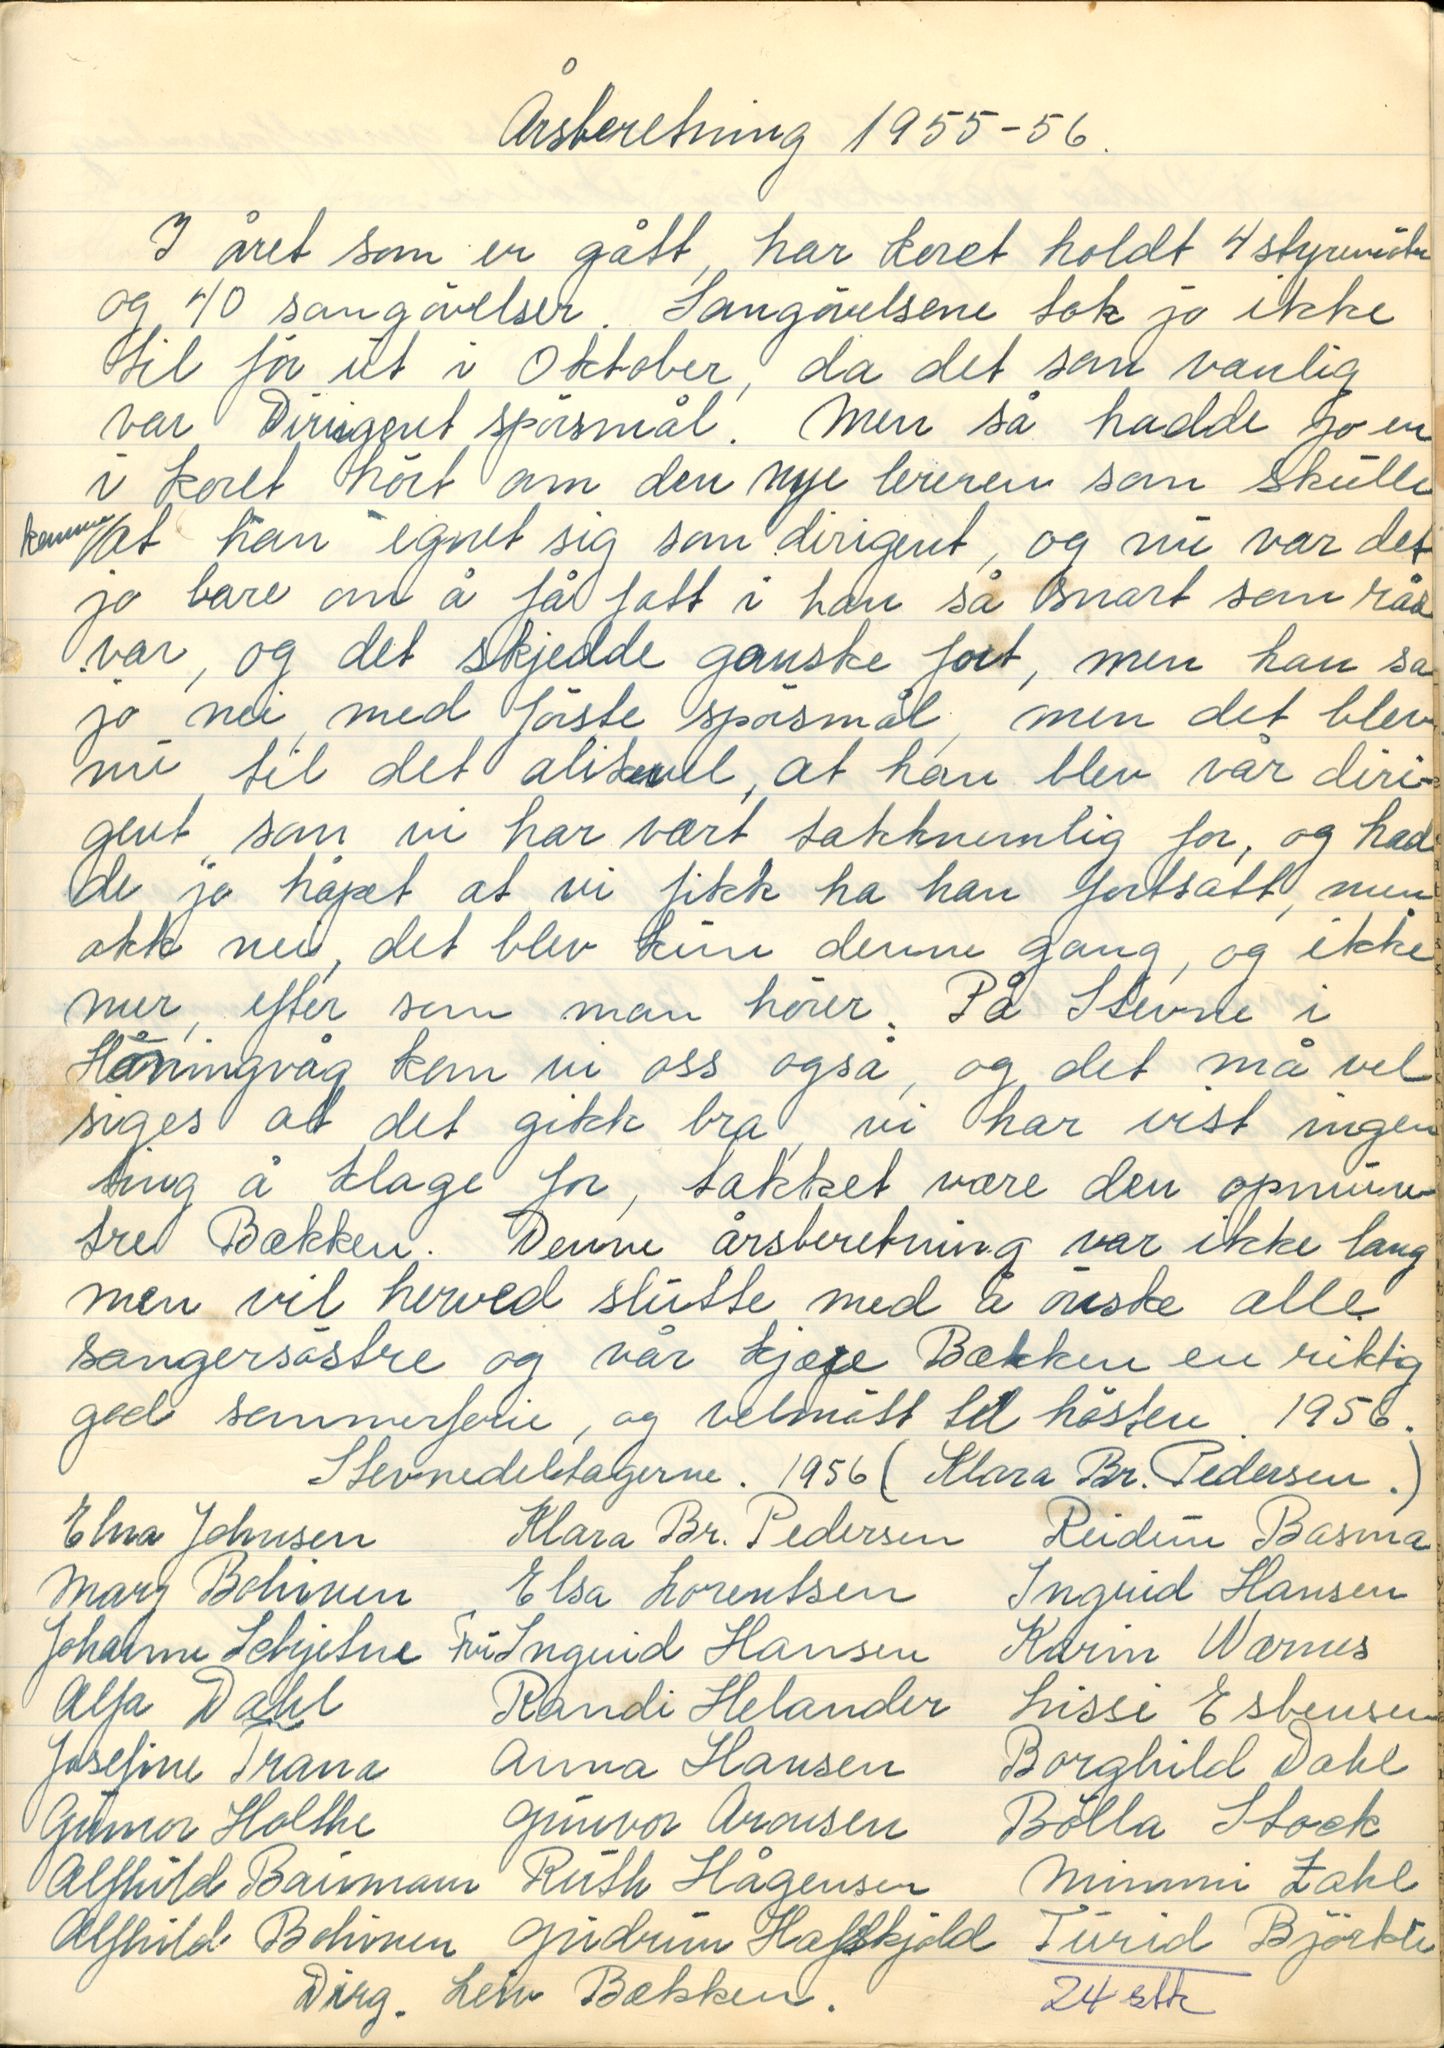 Årsberetning 1955-56.
I året som er gått, har koret holdt 4 styremöte
og 40 sangövelser. Sangövelsene tok jo ikke
til för ut i Oktober, da det som vanlig
var Dirigent spörsmål. Men så hadde jo en
i koret hört om den nye lereren som skulle
komme at han egnet sig som dirigent, og nu var det
jo bare om å få fatt i han så snart som råd
var, og det skjedde ganske fort, men han sa
jo nei, med förste spörsmål, men det blev
nu til det alikevel, at han blev vår diri-
gent som vi har vært takknemlig for, og had
de jo håpet at vi fikk ha han fortsatt, men
akk nei, det blev kun denne gang, og ikke
mer, efter som man hörer. På Stevne i
Håningvåg kom vi oss også, og det må vel
siges at det gikk bra, vi har vist ingen
ting å klage for, takket være den opmun-
tre Bækken. Denne årsberetning var ikke lang
men vil herved slutte med å önske alle
sangersöstre og vår kjære Bækken en riktig
god sommerferie, og velmött til hösten. 1956.
Stevnedeltagerne. 1956 (Klara Br. Pedersen.)
Elna Johnsen Klara Br. Pedersen Reidun Basma
Mary Bohinen Elsa Lorentsen Ingrid Hansen
Johanne Schjelne Fru Ingrid Hansen Karin Wærnes
Alfa Dahl Randi Helander Lissi Esbensen
Josefine Trana Anna Hansen Borghild Dahl
Gunvor Holthe Gunvor Aronsen Bölla Stock
Alfhild Baumann Ruth Hågensen Mimmi Zahl
Alfhild Bohinen Gudrun Hafskjöld Turid Björkli
Dirg. Leiv Bækken. 24 stk